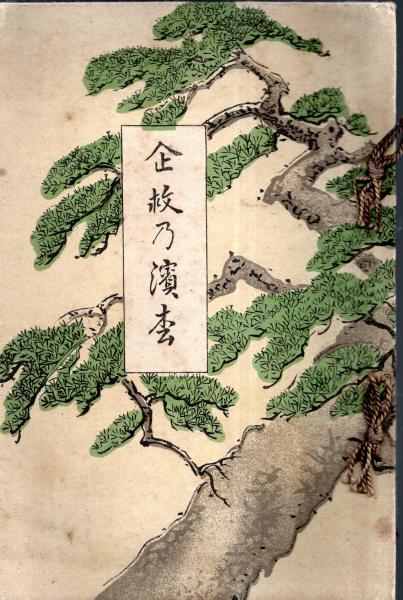 企救乃濱枩